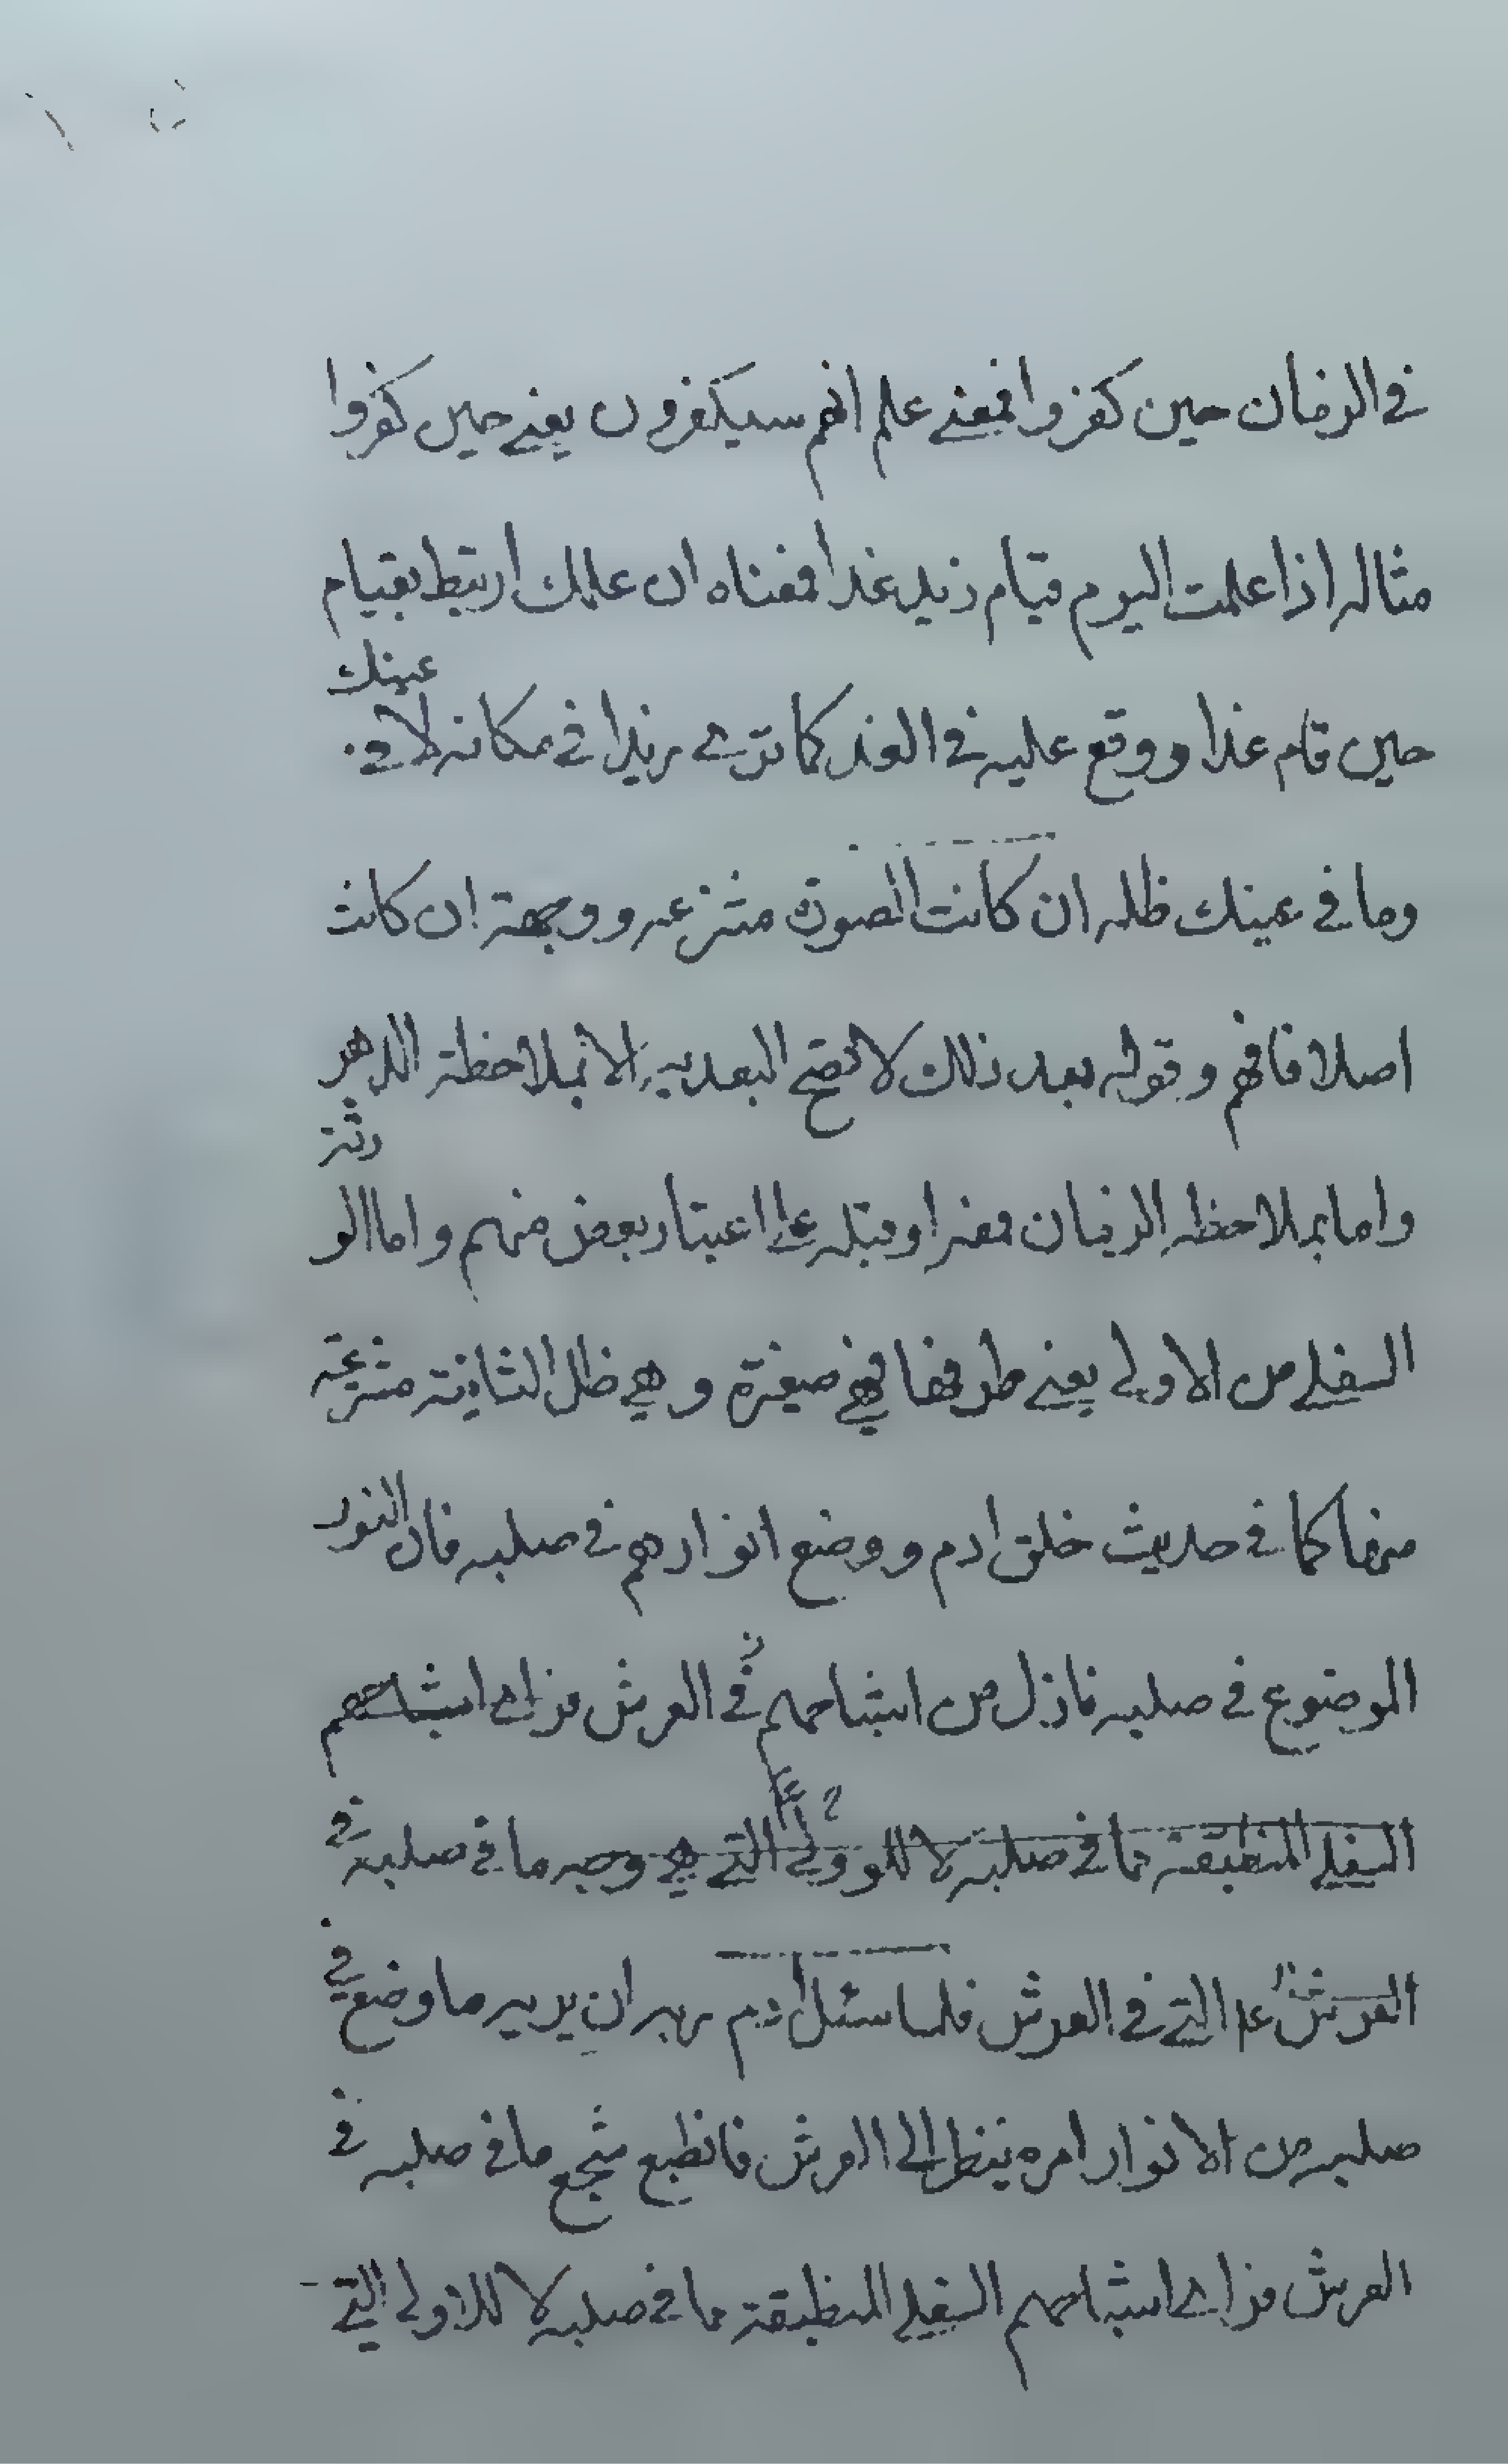 في الزمان حين كفروا فمعنى علم انهم سيكفرون يعني حين كفروا
مثاله اذا علمت اليوم قيام زيد غدا فمعناه ان علمك ارتبط بقيام
حين قام غدا ووقع عليه في الغد كما ترى زيدا في مكانه لا في عينك
وما في عينك ظله ان كانت الصورة منتزعه ووجهة ان كانت
اصلا فافهم وقوله بعد ذلك لا تصح البعديه الا بملاحظة الدهر
واما بملاحظه الزمان فمع او قبله على اعتبار بعض منهم واما الورثة
السفلى من الاولى يعني طرفها فهي صغيرة وهي ظل الثانية منتزعة
منها كما في حديث خلق ادم ووضع انوارهم في صلبه فان النور
الموضوع في صلبه نازل من اشباحهم في العرش فراى اشباحهم
السفلى المنطبقة مما في صلبه لا للاولى التي هي وجه ما في صلبه في
العرش التي في العرش فلما سئل ادم ربه ان يريه ما وضع في
صلبه من الانوار امره ينظر الى العرش فانطبع شبح ما في صلبه في
العرش فراى اشباحهم السفلى المنطبقة مما في صلبه لا للاولى التي